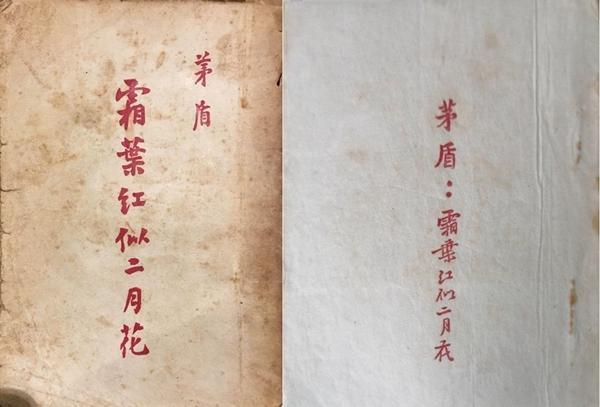 茅盾
霜葉红似二月花
茅盾：霜葉红似二月花